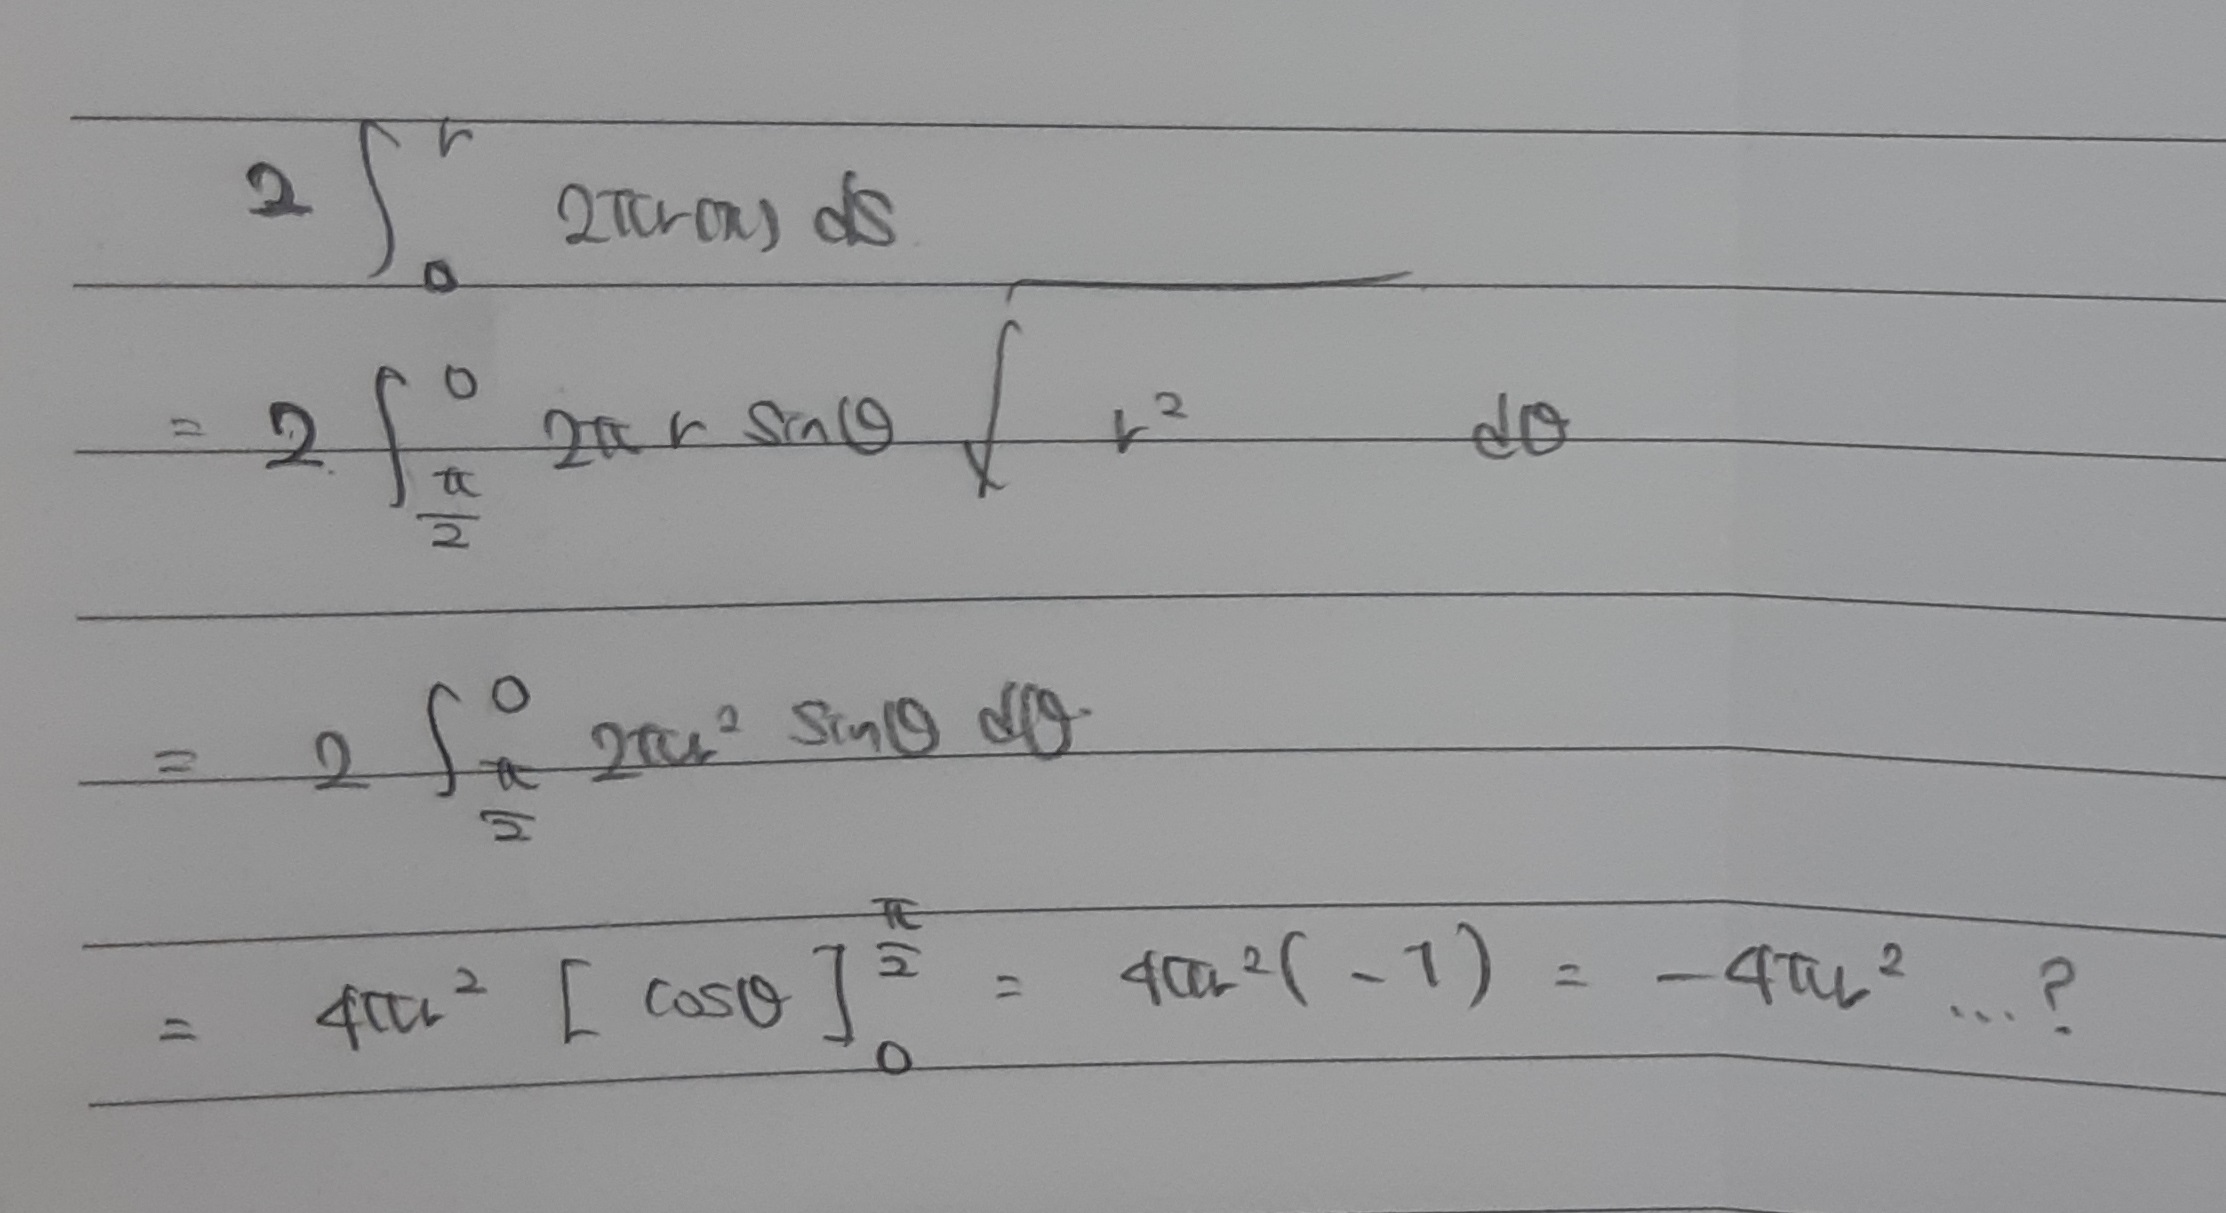 2 ∫₀^r 2πr(x) ds
= 2 ∫_{π/2}^0 2π r sinθ √(r²) dθ
= 2 ∫_{π/2}^0 2πr² sinθ dθ
= 4πr² [cosθ]_0^{π/2} = 4πr²(-1) = -4πr² ...?